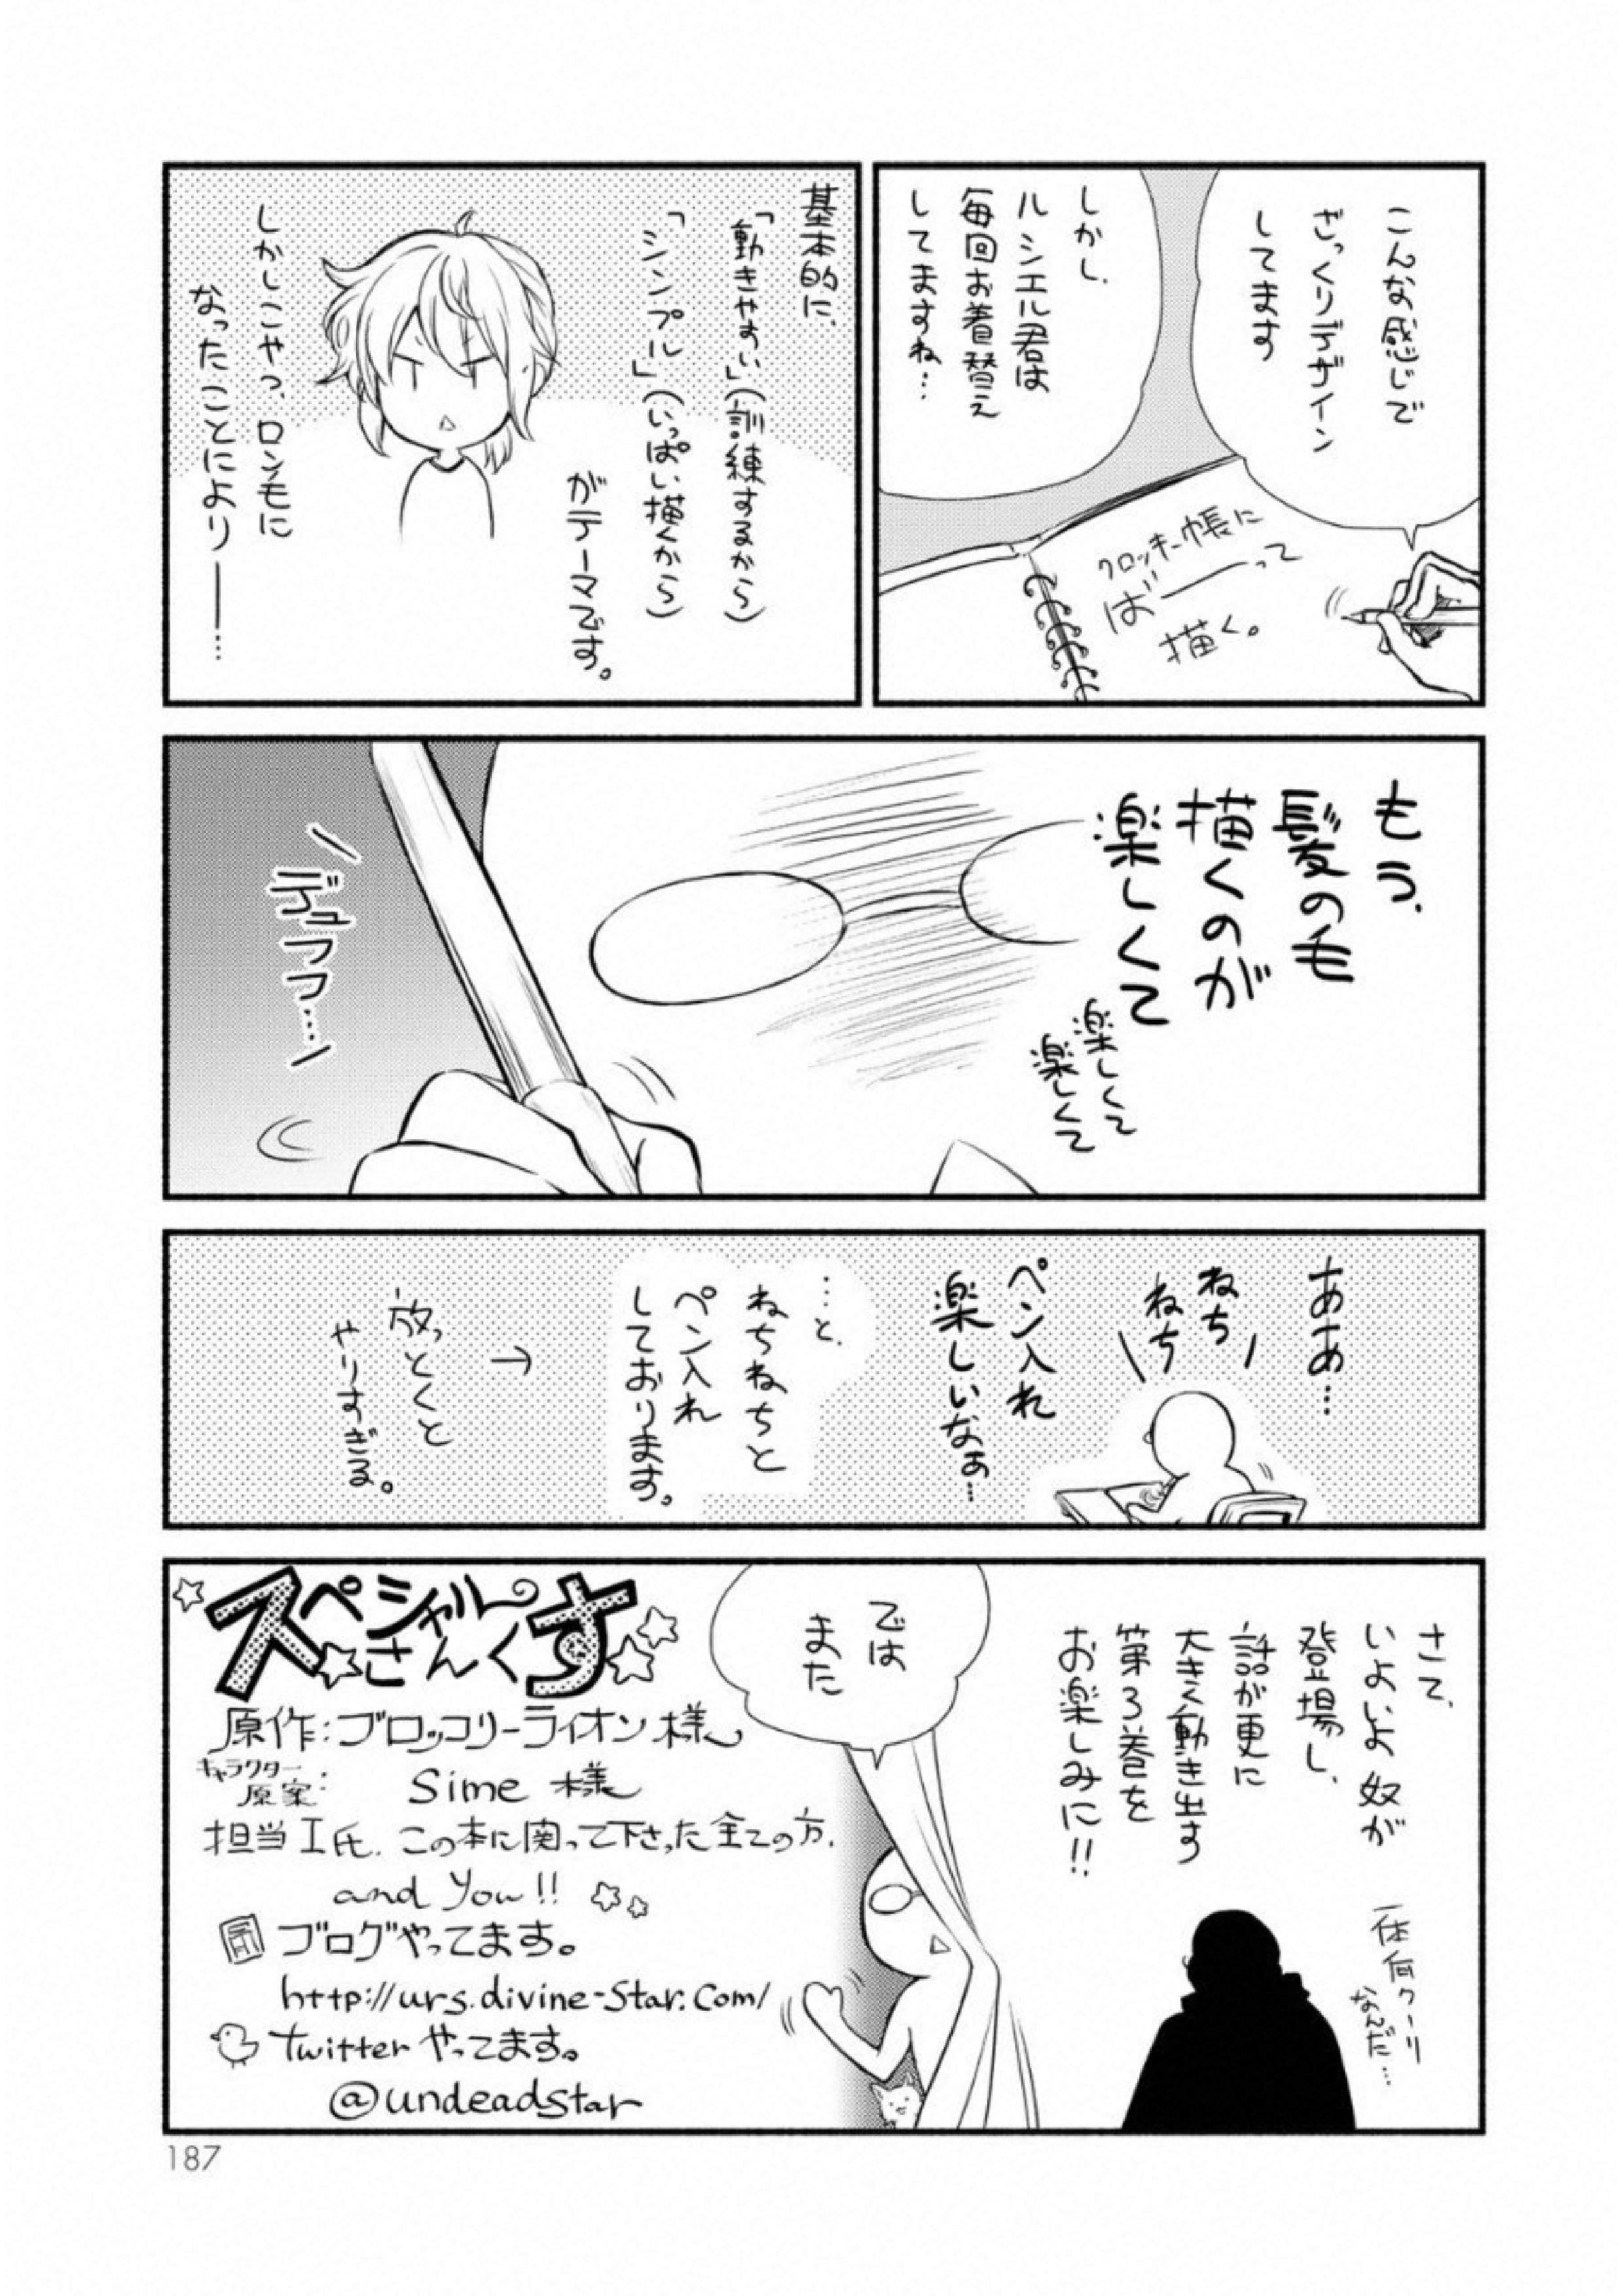 こんな感じで
ざっくりデザイン
してます
しかし、
ルシエル君は
毎回お着替え
してますね…
クロッキー帳に
ばーーって
描く。
基本的に、
「動きやすい」(訓練するから)
「シンプル」(いっぱい描くから)
がテーマです。
しかしこやつ、ロン毛に
なったことにより――…
もう、
髪の毛
描くのが
楽しくて
楽しくて
楽しくて
デュフフ…
ああ…
ねち
ねち
ペン入れ
楽しいなぁ…
…と、
ねちねちと
ペン入れ
しております。
→
放っとくと
やりすぎる。
さて、
いよいよ奴が
登場し、
話が更に
大きく動き出す
第3巻を
お楽しみに!!
一体何クーリ
なんだ…
では
また
スペシャル
さんくす
原作:ブロッコリーライオン様
キャラクター
原案: Sime 様
担当I氏、この本に関って下さった全ての方、
and You!!
ブログやってます。
http://urs.divine-star.com/
twitterやってます。
@undeadstar
187